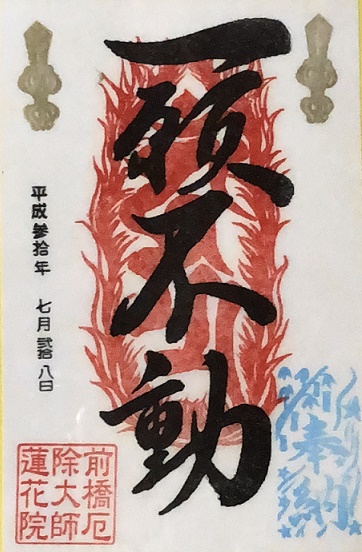 奉納
一願不動
平成參拾年 七月貳拾八日
前橋厄
除大師
蓮花院